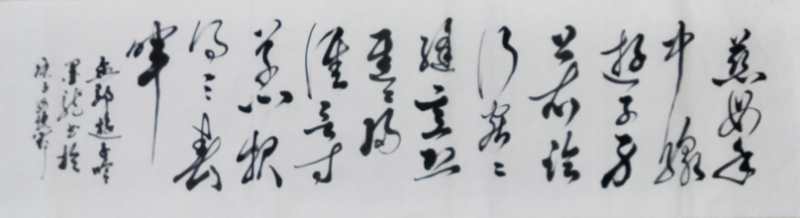 慈母手
中線
遊子身
上衣臨
行密〻
縫意恐
遲〻歸
誰言寸
草心報
得三春
暉
孟郊遊子吟
墨龍書於
庚子